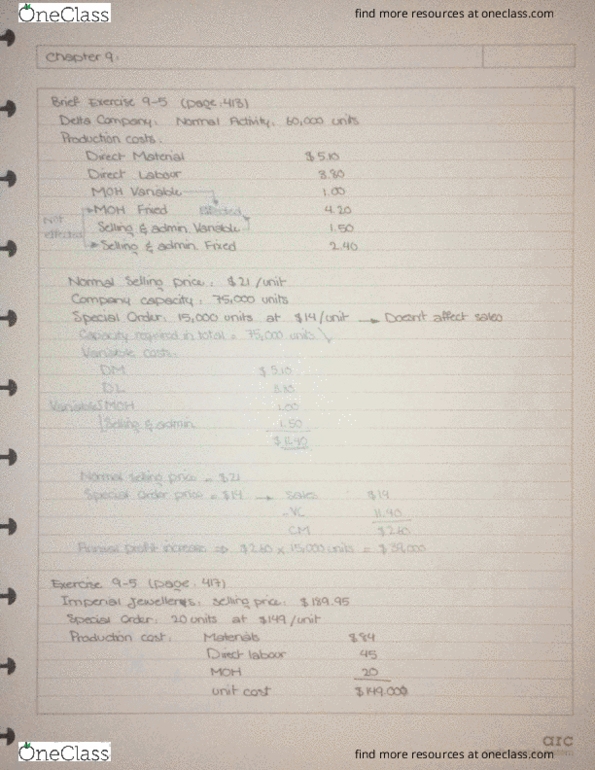 OneClass
find more resources at oneclass.com
Chapter 9:
Brief Exercise 9-5 (page. 413)
Delta Company. Normal Activity. 60,000 units
Production costs.
Direct Material $5.10
Direct Labour 3.80
MOH Variable 1.00
MOH Fixed 4.20
Not effected
Effected
Selling & admin Variable 1.50
Selling & admin. Fixed 2.40
Normal Selling price: $21 /unit
Company capacity: 75,000 units
Special Order: 15,000 units at $14 /unit → Doesn't affect sales
Capacity required in total = 75,000 units
Variable costs:
DM $5.10
DL 3.80
Variable MOH 1.00
Selling & admin 1.50
$11.40
Normal selling price = $21
Special Order price = $14 → Sales $14
-VC 11.40
CM $2.60
Annual profit increase ⇒ $2.60 x 15,000 units = $39,000
Exercise 9-5 (page. 417)
Imperial Jewellers: selling price: $189.95
Special Order: 20 units at $149 /unit
Production cost: Materials $84
Direct labour 45
MOH 20
unit cost $149.00
arc
OneClass
find more resources at oneclass.com